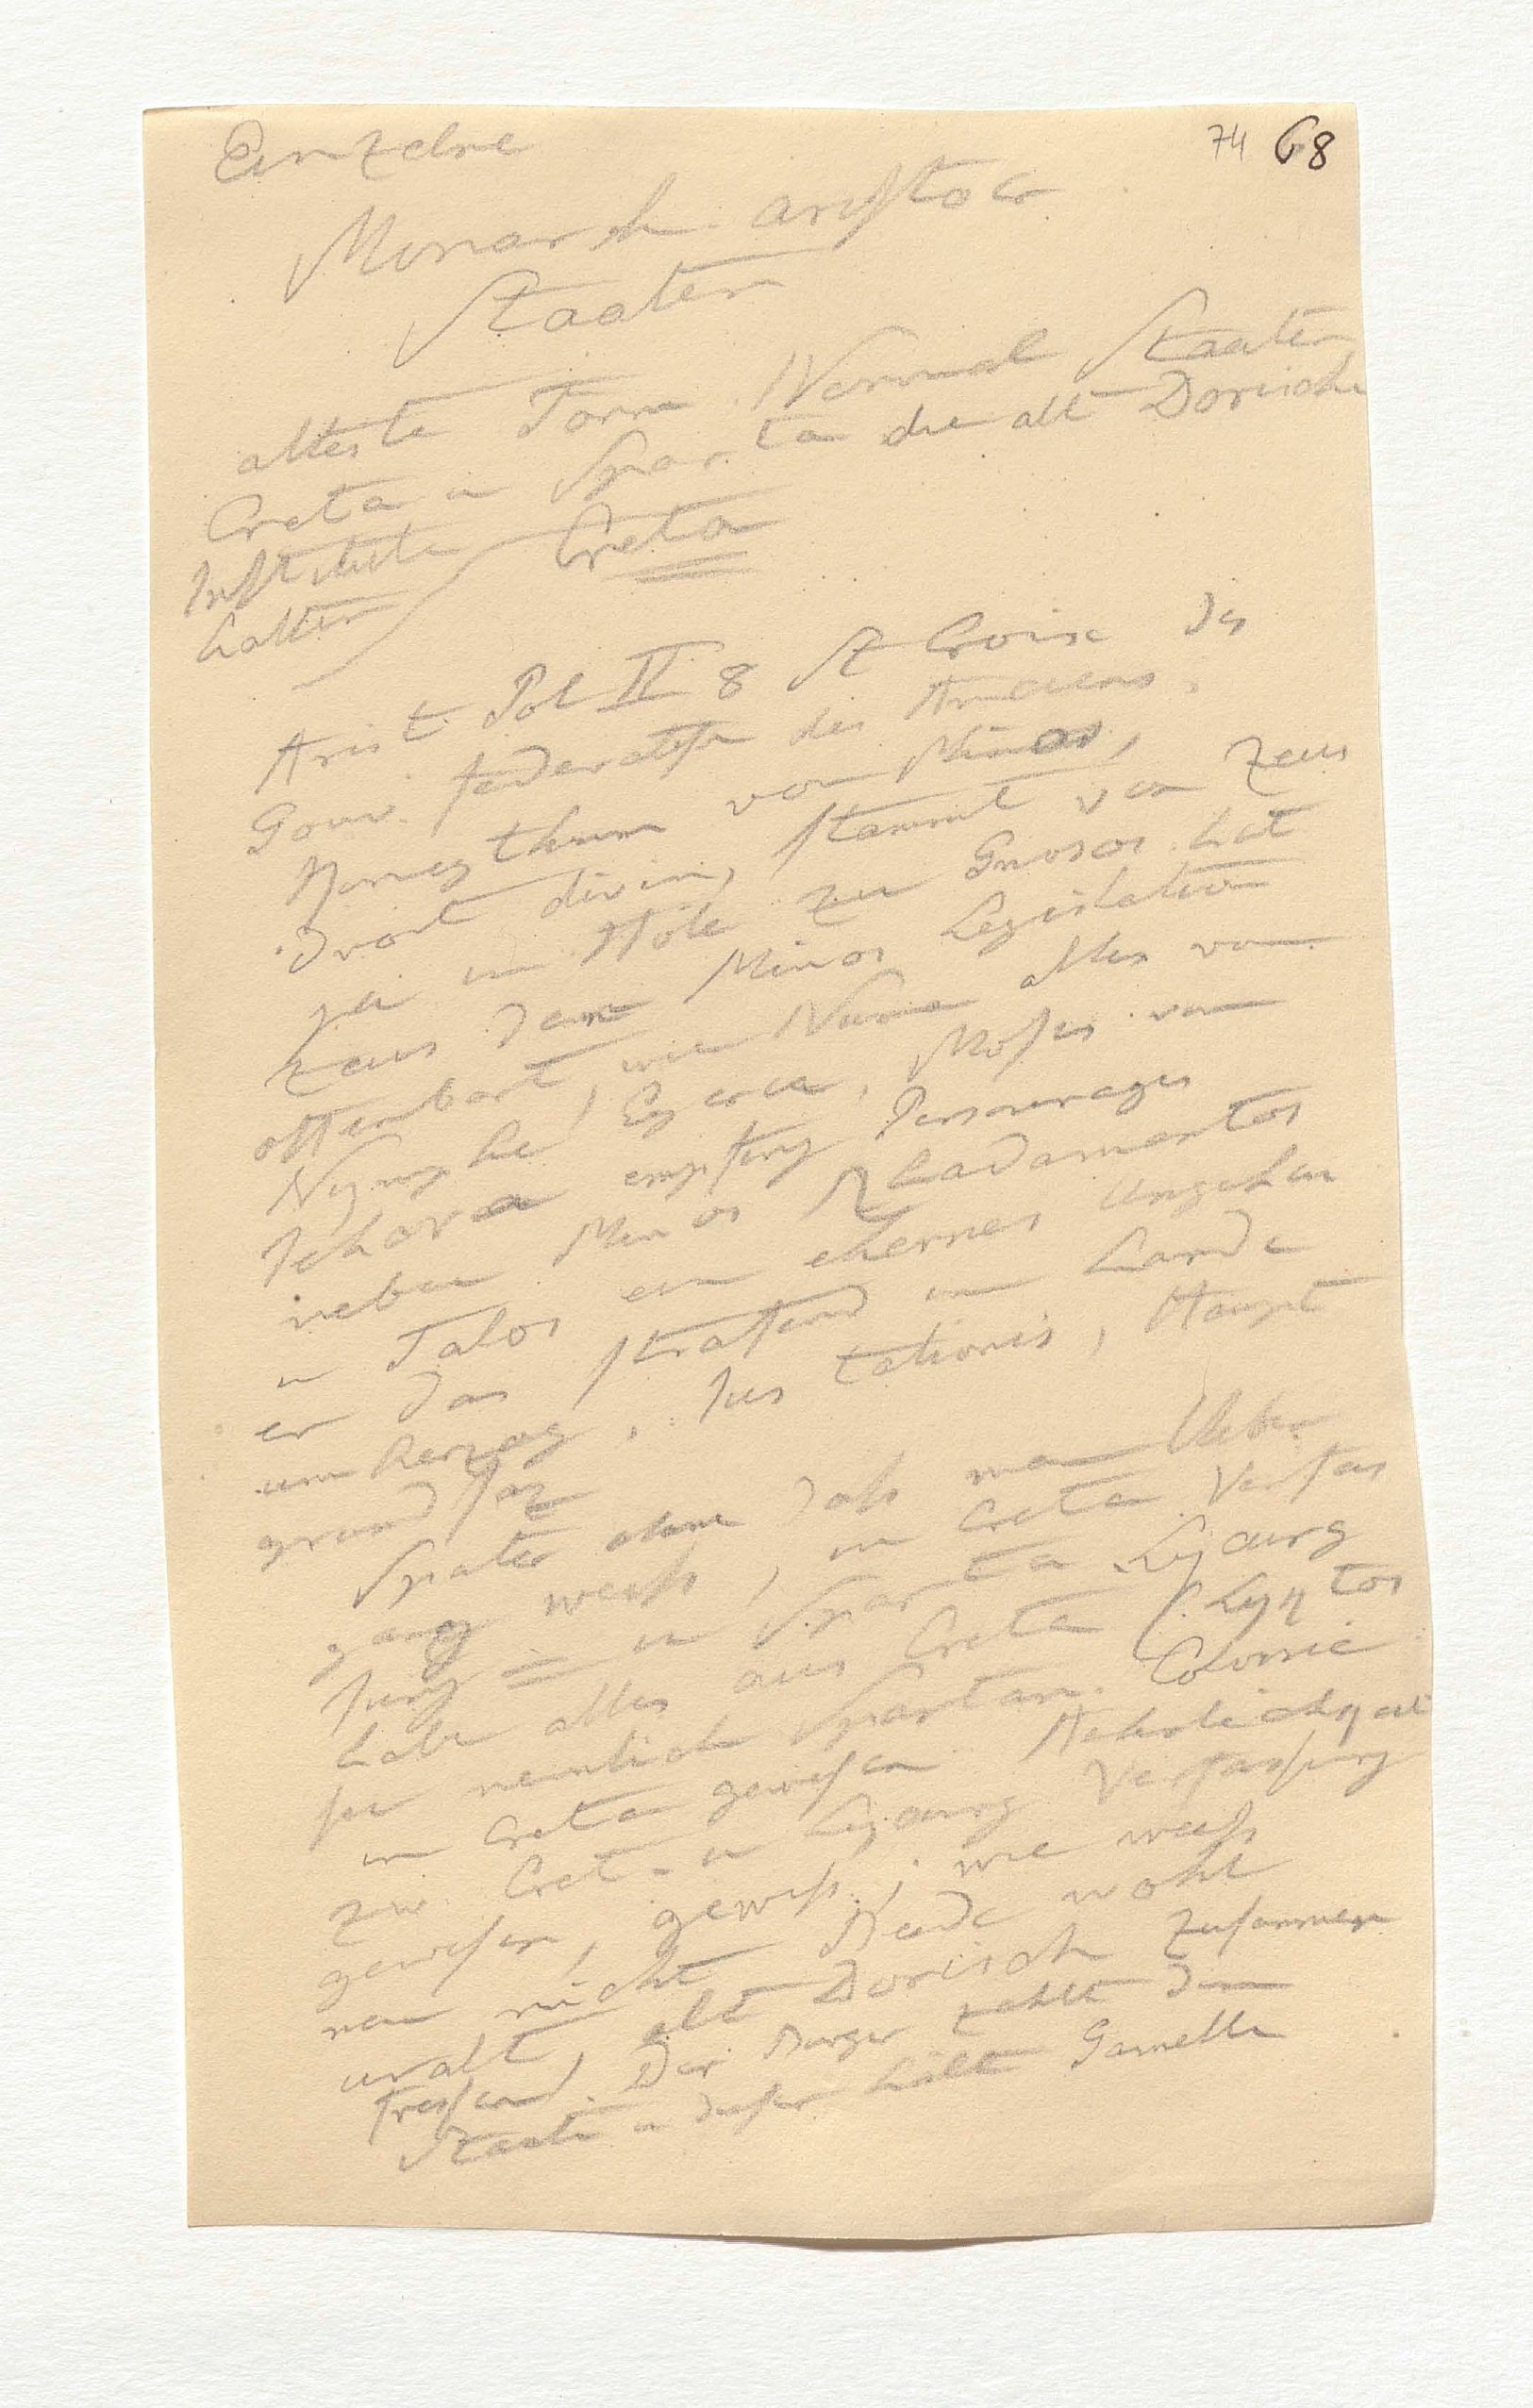 74 68
Einzelne
Monarch. aristocr
Staaten
älteste Form. Normal Staaten
Creta u Sparta die alt Dorische
Institute
hatten
Creta
Arist. Pol II 8 St Croix des
Gouv. federatifs des Anciens.
Königthum von Minos,
Droit divin, stammt von Zeus
ja in Höle zu Gnosos hat
Zeus dem Minos Legislation
offenbart, wie Numa alles von
Nymphe Egeria, Moses von
Jehova empfing Personnages
neben Minos Rhadamantos
u Talos ein ehernes Ungeheur
er das strafend im Lande
umherzog, Jus talionis, Haupt
grundsaz
Später ohne daß man Ueber
gang weiß, in Creta Verfas
sung = u Sparta Lycurg
habe alles aus Creta (Lyktos
sei nemlich Spartan. Colonie
in Creta gewesen Aehnlichkeit
zw Cret. u Lycurg Verfassung
gewesen, gewiß, wie weiß
man nicht Beide wohl
uralt, alt Dorisch zusammen
treffend. Der Bürger zahlt dem
Staate u dieser hält Gamelle